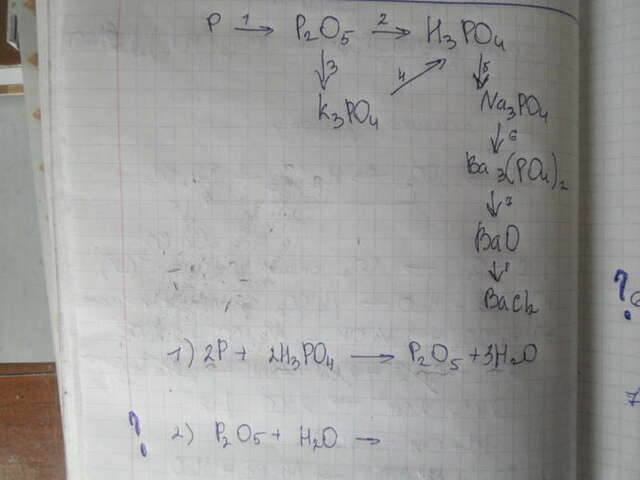 P 1→ P₂O₅ 2→ H₃PO₄
↓3 4↗ ↓5
K₃PO₄ Na₃PO₄
↓6
Ba₃(PO₄)₂
↓7
BaO
↓
BaCl₂
1) 2P + 2H₃PO₄ → P₂O₅ + 3H₂O
! 2) P₂O₅ + H₂O →
7